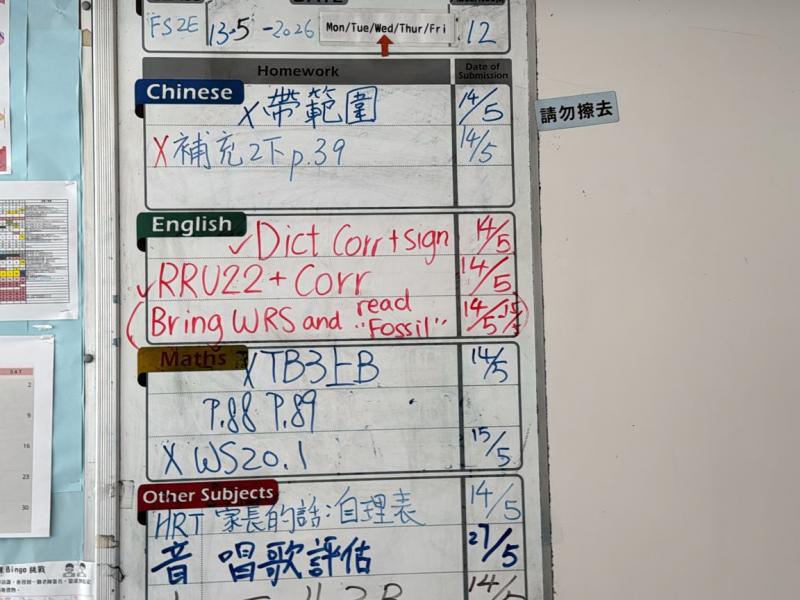 FS2E 13-5-2026 Mon/Tue/Wed/Thur/Fri 12
Homework Date of Submission
Chinese
X 帶範圍 14/5
X 補充2下p.39 14/5
English
✓Dict Corr+sign 14/5
✓RRU22+Corr 14/5
(Bring WRS and read "Fossil" 14/5-15/5)
Maths
X TB3上B 14/5
P.88 P.89
X WS20.1 15/5
Other Subjects
HRT 家長的話:自理表 14/5
音 唱歌評估 27/5
14/5
請勿擦去
S A T
2
9
16
23
30
Bingo 挑戰